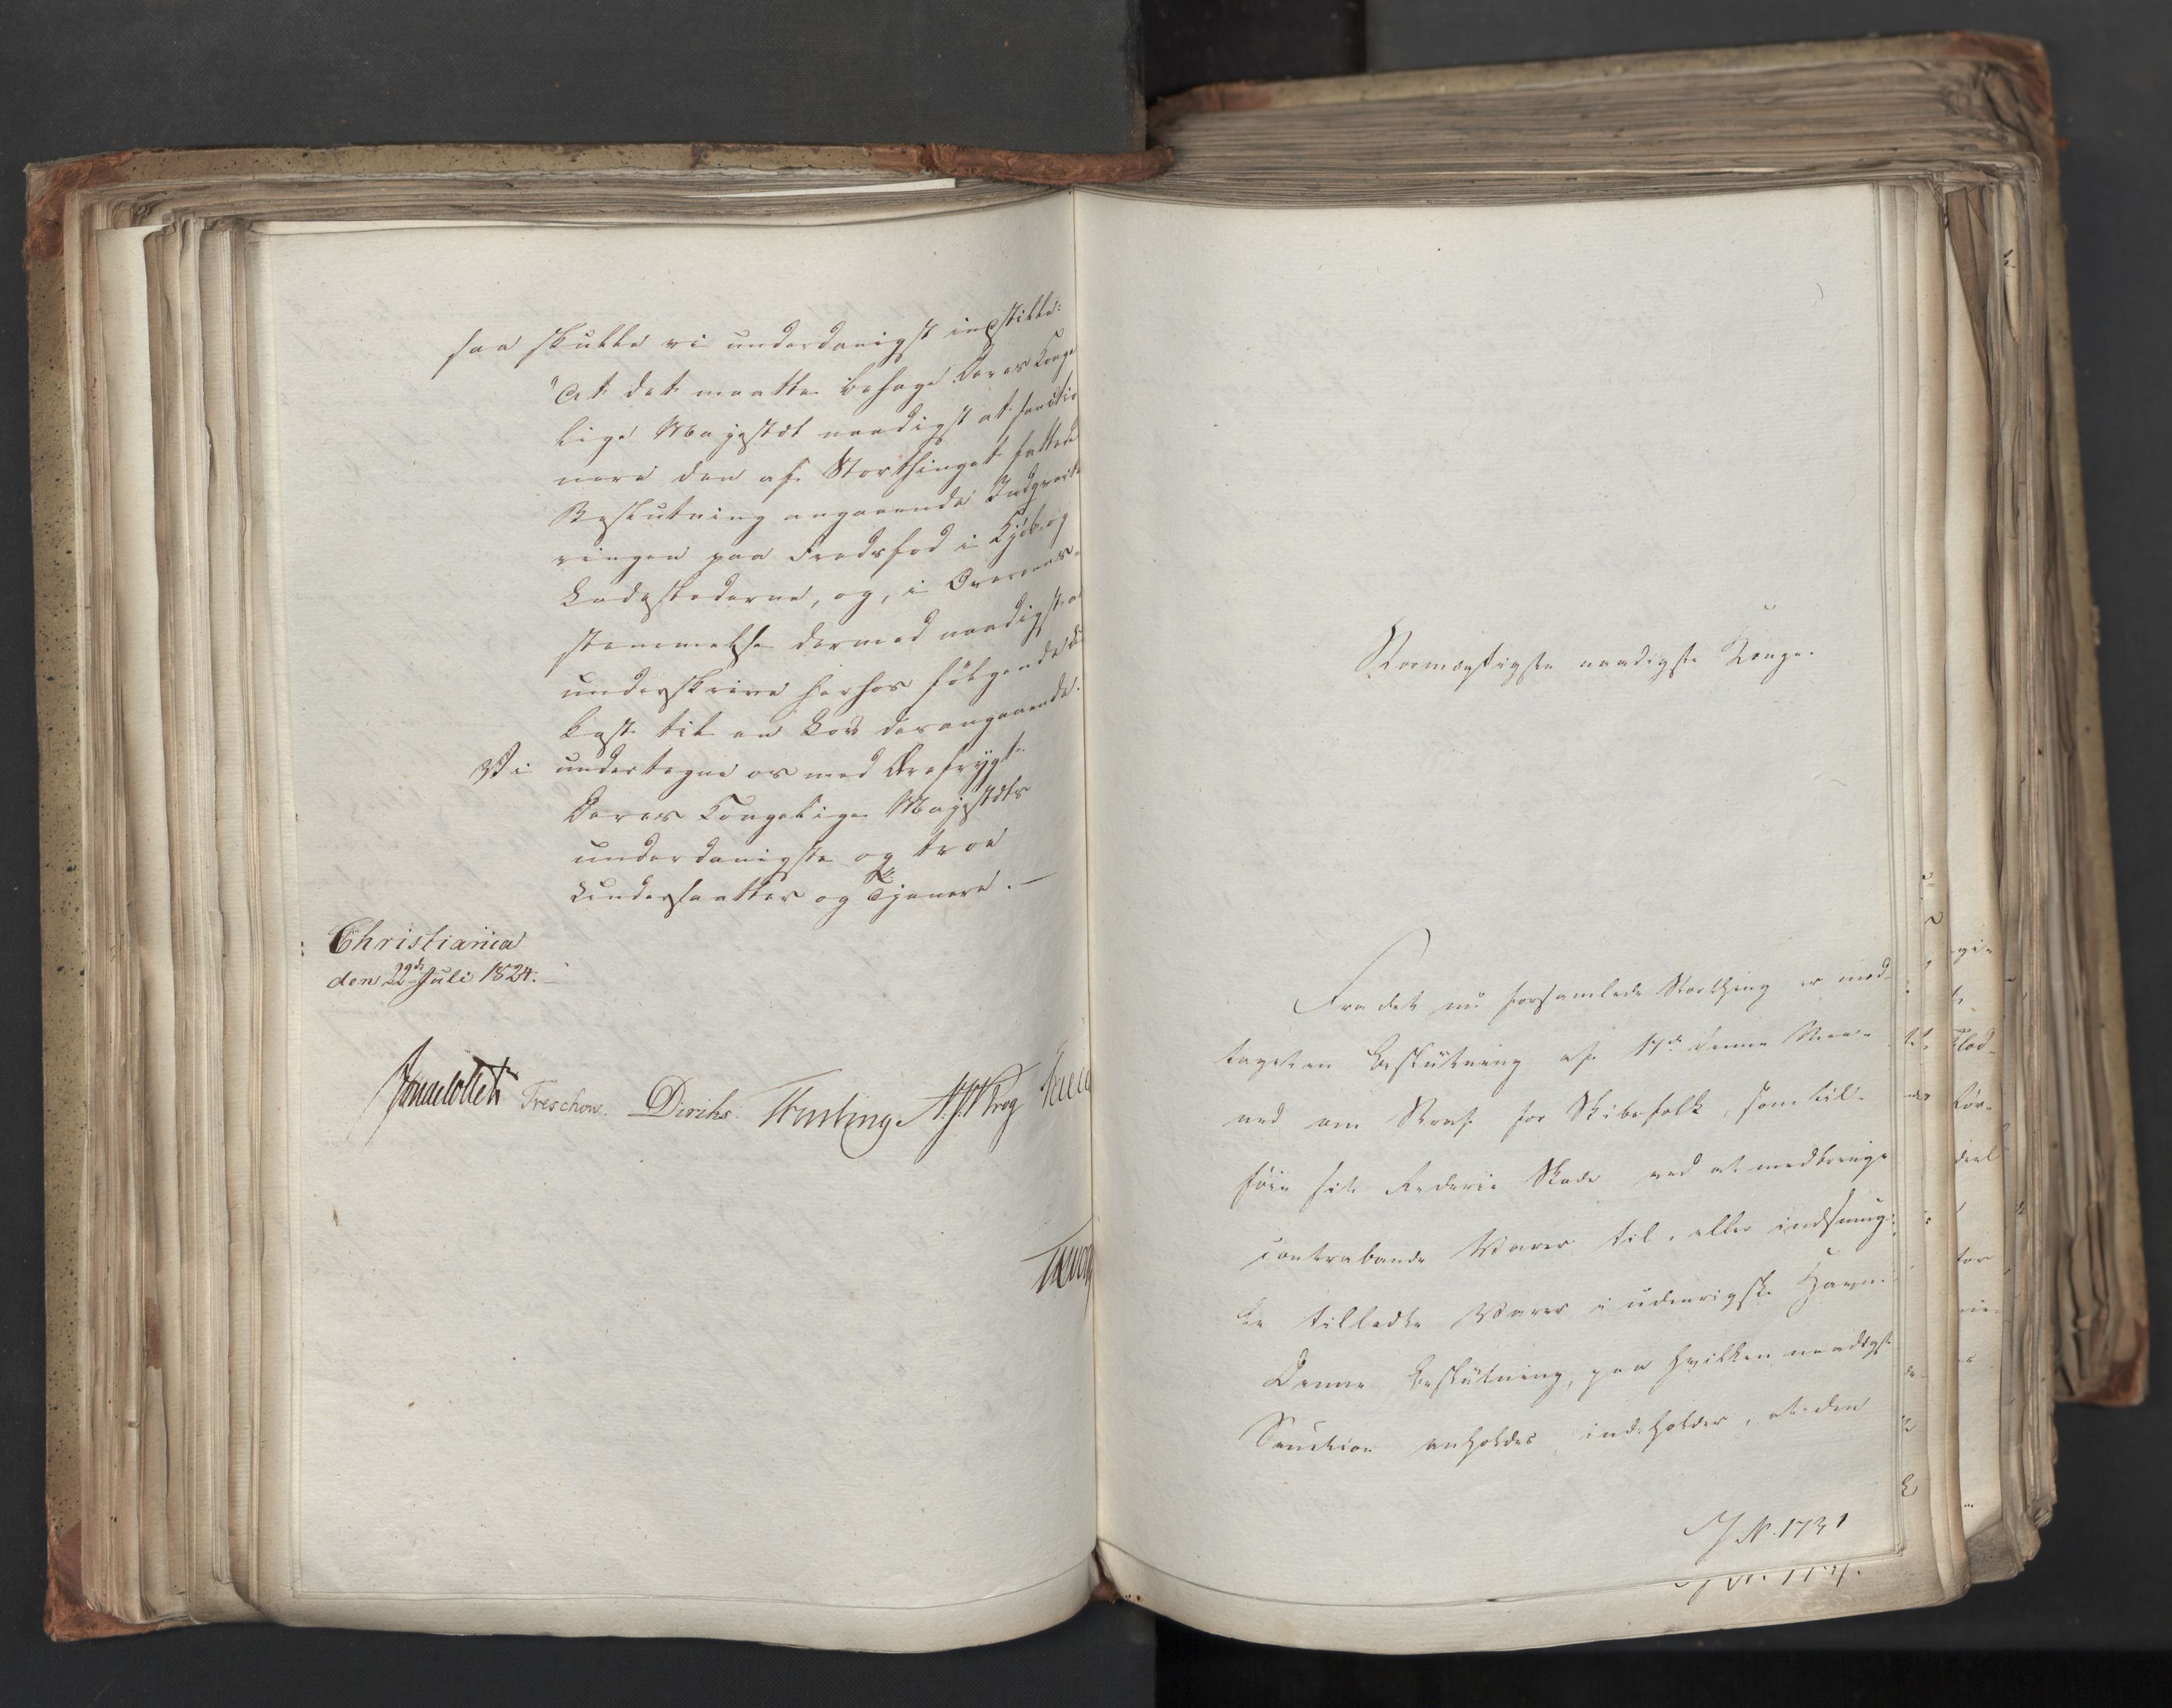 saa skulle vi underdanigst indstille:
"At det maatte behage Deres Konge
lige Majestæt naadigst at sanctio
nere den af Storthinget fattede
Beslutning angaaende Indqvarte
ringen paa Fredsfod i Kjøb- og
Ladestederne, og, i Overeens-
stemmelse dermed naadigst at
underskrive herhos følgende Ud
kast til en Lov derangaaende.
Vi undertegne os med Ærefrygt
Deres Kongelige Majestæts
underdanigste og troe
Undersaatter og Tjenere. —
Christiania
den 22de Juli 1824.
Treschow. Diriks. A. J. Krog
Stormægtigste naadigste Konge.
Fra det nu forsamlede Storthing er mod-
taget en Beslutning af 17de denne Maa-
ned om Straf for Skibsfolk, som til-
føie sit Rederie Skade ved at medbringe
contrabande Varer til, eller indsmug-
le tilladte Varer i udenrigske Havne.
Denne Beslutning, paa hvilken naadigst
Sanction anholdes indeholder, at den
J. N. 1731